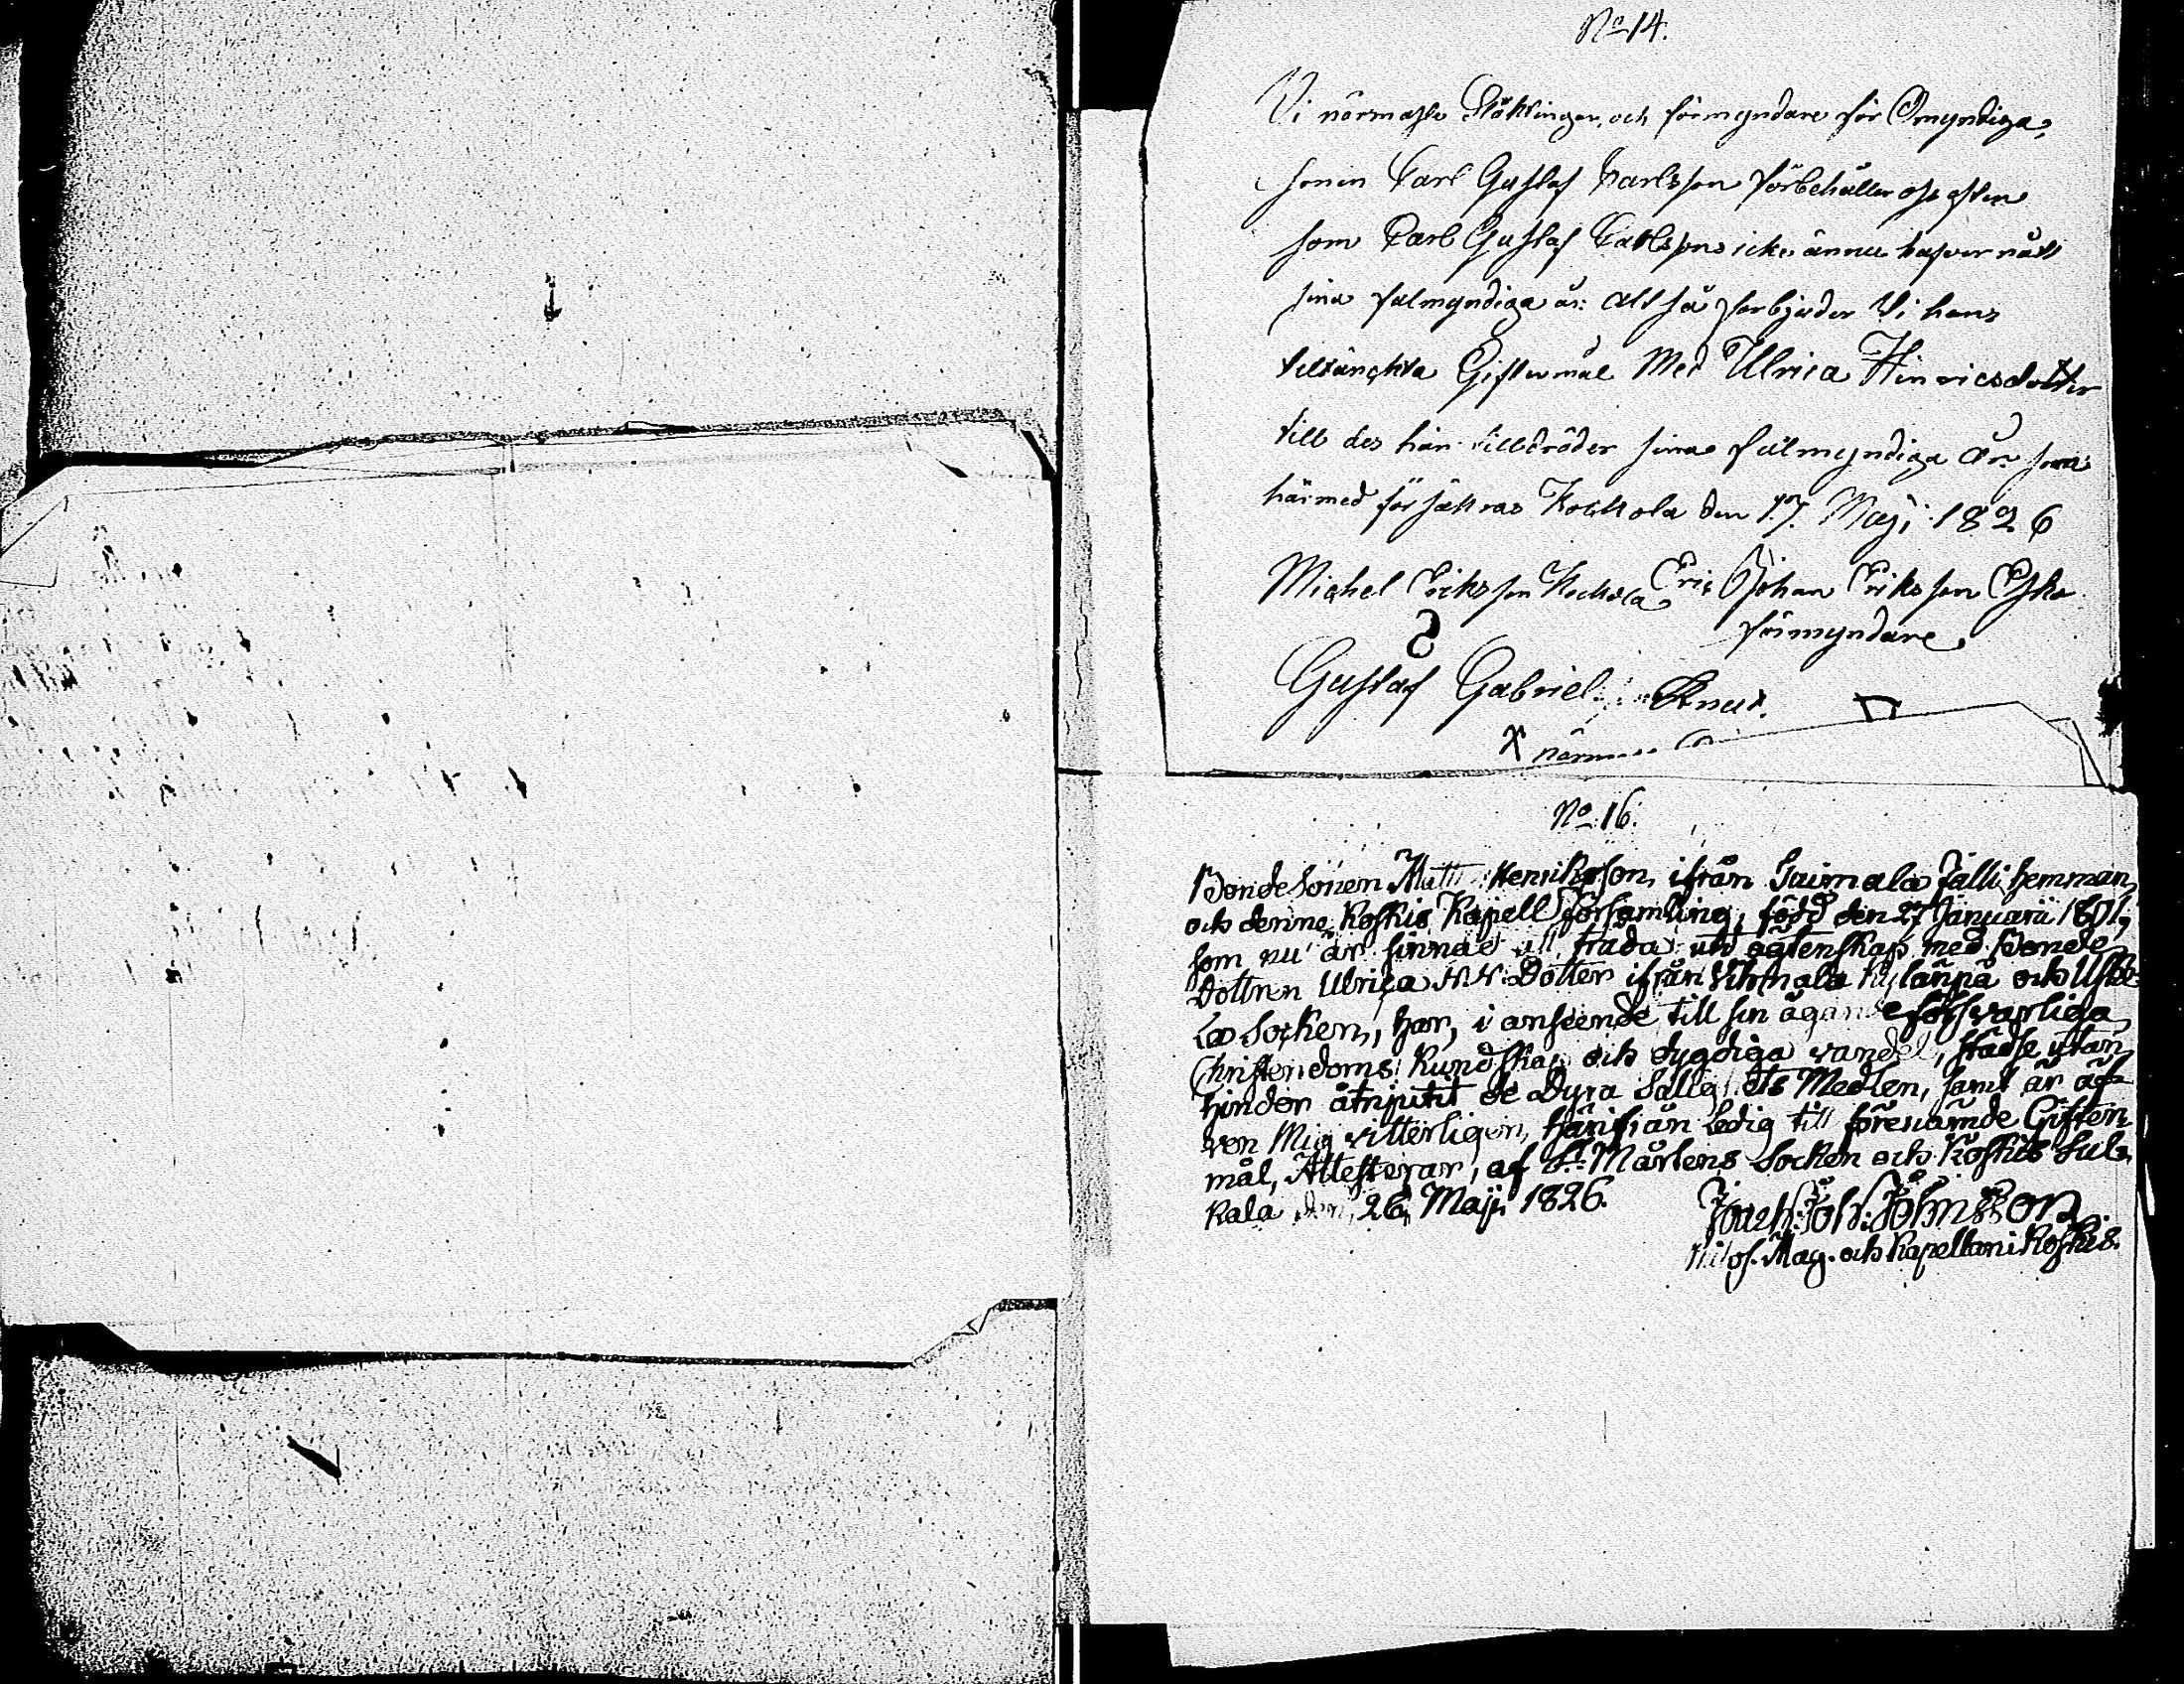 No 14.
Vi närmaste Släktingar, och förmyndare för Omyndiga
sonen Carl Gustaf Carlsson förbehåller oss efter
som Carl Gustaf Carlsson icke ännu hafver nått
sina fulmyndiga år: altså förbjuder Vi hans
tilltänchta Giftermål Med Ulrica Hinricsdotter
till des han tillträder sina fulmyndiga År som
härmed försäkras Kockola den 17. Maji 1826
Michel Ericksson Kockola Eric Johan Eriksson Esko
förmyndare
Gustaf Gabriel Knut.
No 16.
Bondesonen Matts Henriksson, ifrån Jälli hemman
och denne Koskis Kapell Församling, född den 27 Januarii 1801,
som nu är sinnad att träda uti ägtenskap med Bonde
Dottren Ulrica N.N. Dotter ifrån och Uske
la Socken, har, i anseende till sin ägande försvarliga
Christendoms Kundskap och dygdiga vandel, städse utan
hinder åtnjutit de Dyra Salighets Medlen, samt är äf-
ven Mig vitterligen, härifrån Ledig till förenämde Gifter-
mål, Attesterar, af St. Mårtens Socken och Koskis Sul-
kala den 26 Maji 1826.
Joh: Johnsson
Filos. Mag. och Kapellan i Koskis.